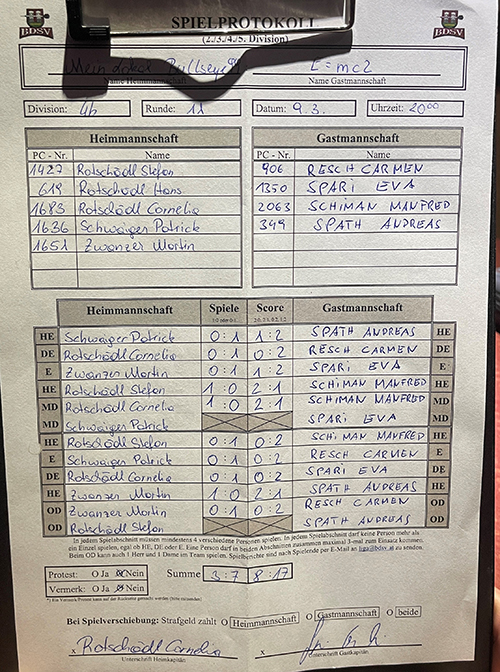 SPIELPROTOKOLL
BDSV (2./3./4./5. Division) BDSV
Mein Lokal Bullseye E = mc2
Name Heimmannschaft Name Gastmannschaft
Division: 4b Runde: 11 Datum: 9.3. Uhrzeit: 20 00
Heimmannschaft Gastmannschaft
PC - Nr. Name PC - Nr. Name
1427 Rotschädl Stefan 906 RESCH CARMEN
619 Rotschädl Hans 1350 SPARI EVA
1683 Rotschädl Cornelia 2063 SCHIMAN MANFRED
1636 Schwaiger Patrick 349 SPATH ANDREAS
1651 Zwanzer Martin
Heimmannschaft Spiele Score Gastmannschaft
HE Schwaiger Patrick 0:1 1:2 SPATH ANDREAS HE
DE Rotschädl Cornelia 0:1 0:2 RESCH CARMEN DE
E Zwanzer Martin 0:1 1:2 SPARI EVA E
HE Rotschädl Stefan 1:0 2:1 SCHIMAN MANFRED HE
MD Rotschädl Cornelia 1:0 2:1 SCHIMAN MANFRED MD
MD Schwaiger Patrick SPARI EVA MD
HE Rotschädl Stefan 0:1 0:2 SCHIMAN MANFRED HE
E Schwaiger Patrick 0:1 0:2 RESCH CARMEN E
DE Rotschädl Cornelia 0:1 0:2 SPARI EVA DE
HE Zwanzer Martin 1:0 2:1 SPATH ANDREAS HE
OD Zwanzer Martin 0:1 0:2 RESCH CARMEN OD
OD Rotschädl Stefan SPATH ANDREAS OD
In jedem Spielabschnitt müssen mindestens 4 verschiedene Personen spielen. In jedem Spielabschnitt darf keine Person mehr als
ein Einzel spielen, egal ob HE, DE oder E. Eine Person darf in beiden Abschnitten zusammen maximal 3-mal zum Einsatz kommen.
Beim OD kann auch 1 Herr und 1 Dame im Team spielen. Spielberichte sind nach Spielende per E-Mail an liga@bdsv.st zu senden.
Protest: O Ja Nein Summe 3:7 8:17
Vermerk: O Ja Nein
Bei Spielverschiebung: Strafgeld zahlt O Heimmannschaft O Gastmannschaft O beide
x Rotschädl Cornelia x
Unterschrift Heimkapitän Unterschrift Gastkapitän